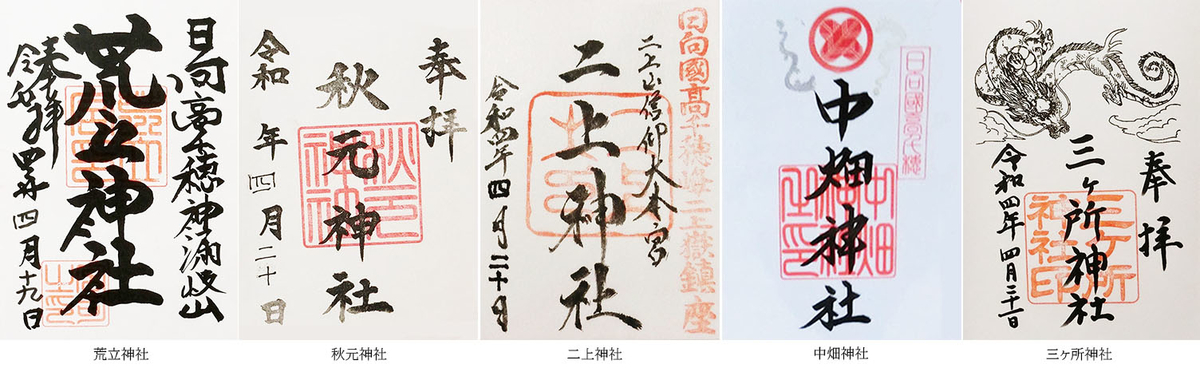 日向高千穂神漏岐山
荒立神社
奉拝
令和四年四月十九日
奉拝
秋元神社
秋元神社
令和 年四月二十日
日向國高千穂
二上嶽鎮座
二上山信仰大本宮
二上神社
令和四年四月二十日
日向國高千穂
中畑神社
奉拝
三ヶ所神社
三ヶ所神社印
令和四年四月二十一日
荒立神社
秋元神社
二上神社
中畑神社
三ヶ所神社